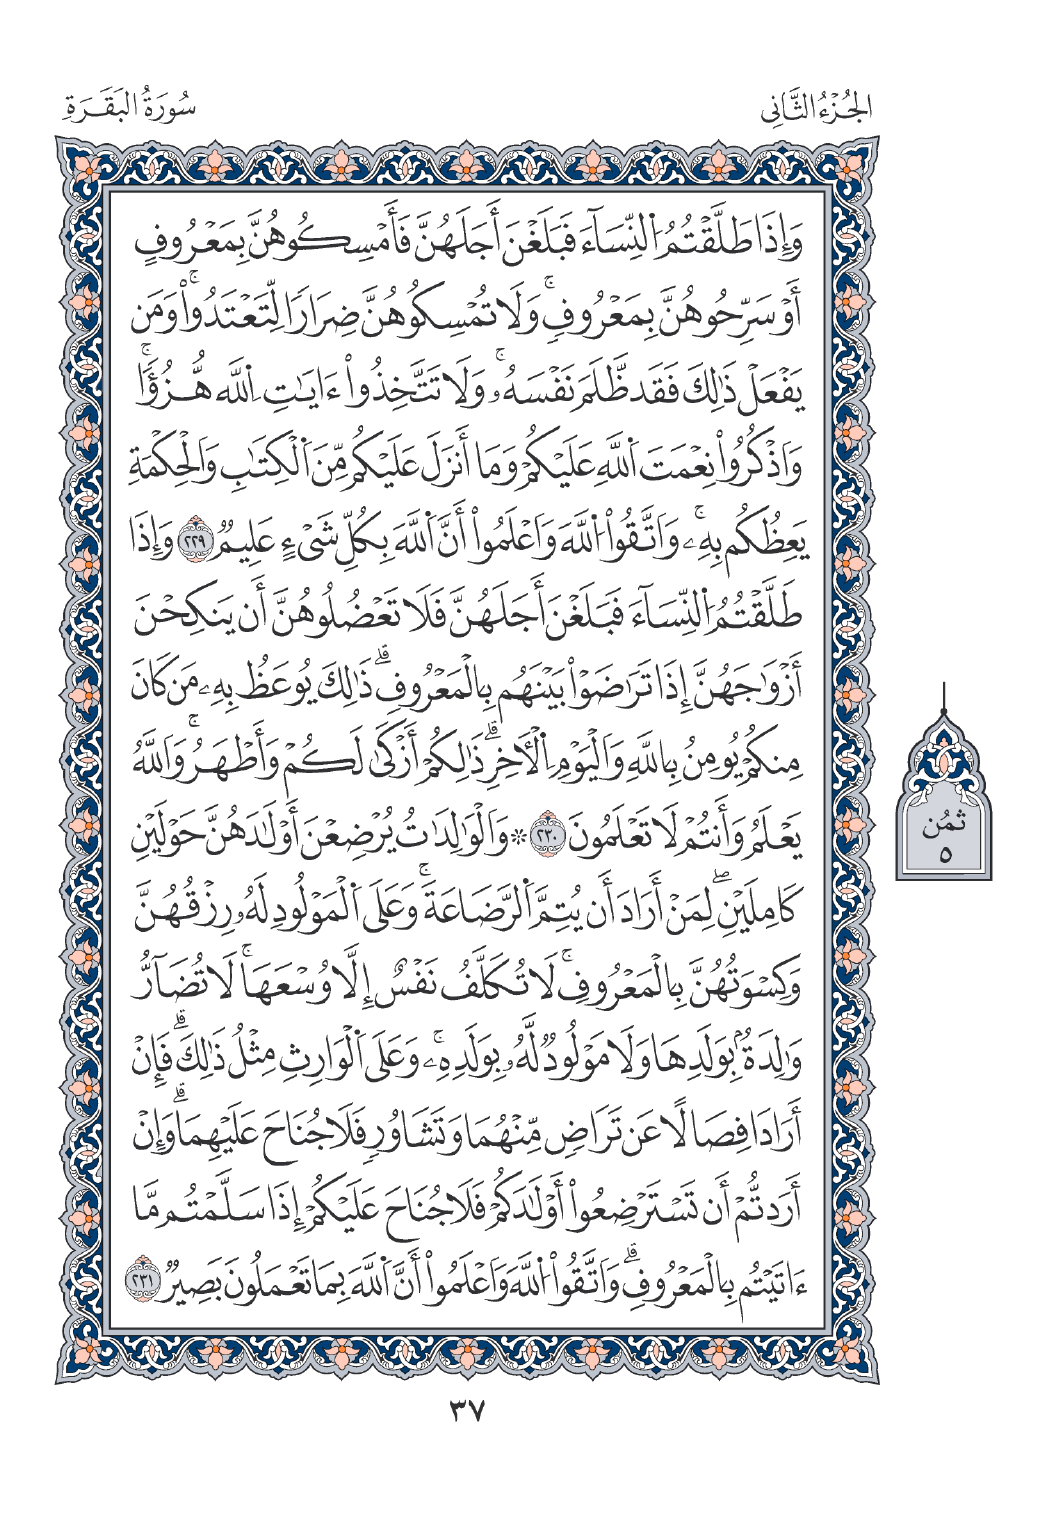 الجُزْءُ الثَّانِى
سُورَةُ البَقَرَةِ
وَإِذَا طَلَّقْتُمُ اُ۬لنِّسَآءَ فَبَلَغْنَ أَجَلَهُنَّ فَأَمْسِكُوهُنَّ بِمَعْرُوفٍ
أَوْ سَرِّحُوهُنَّ بِمَعْرُوفٖۚ وَلَا تُمْسِكُوهُنَّ ضِرَارٗا لِّتَعْتَدُواْۚ وَمَن
يَفْعَلْ ذَٰلِكَ فَقَد ظَّلَمَ نَفْسَهُۥۚ وَلَا تَتَّخِذُوٓاْ ءَايَٰتِ اِ۬للَّهِ هُزُؤٗاۚ
وَاذْكُرُواْ نِعْمَتَ اَ۬للَّهِ عَلَيْكُمْ وَمَا أَنزَلَ عَلَيْكُم مِّنَ اَ۬لْكِتَٰبِ وَالْحِكْمَةِ
يَعِظُكُم بِهِۦۚ وَاتَّقُواْ اُ۬للَّهَ وَاعْلَمُواْ أَنَّ اَ۬للَّهَ بِكُلِّ شَىْءٍ عَلِيمٞ ٢٢٩ وَإِذَا
طَلَّقْتُمُ اُ۬لنِّسَآءَ فَبَلَغْنَ أَجَلَهُنَّ فَلَا تَعْضُلُوهُنَّ أَن يَنكِحْنَ
أَزْوَٰجَهُنَّ إِذَا تَرَٰضَوْاْ بَيْنَهُم بِالْمَعْرُوفِۗ ذَٰلِكَ يُوعَظُ بِهِۦ مَن كَانَ
مِنكُمْ يُومِنُ بِاللَّهِ وَالْيَوْمِ اِ۬لْأٓخِرِۗ ذَٰلِكُمْ أَزْكَىٰ لَكُمْ وَأَطْهَرُۚ وَاللَّهُ
يَعْلَمُ وَأَنتُمْ لَا تَعْلَمُونَ ٢٣٠ ۞ وَالْوَٰلِدَٰتُ يُرْضِعْنَ أَوْلَٰدَهُنَّ حَوْلَيْنِ
كَامِلَيْنِۖ لِمَنْ أَرَادَ أَن يُتِمَّ اَ۬لرَّضَاعَةَۚ وَعَلَى اَ۬لْمَوْلُودِ لَهُۥ رِزْقُهُنَّ
وَكِسْوَتُهُنَّ بِالْمَعْرُوفِۚ لَا تُكَلَّفُ نَفْسٌ إِلَّا وُسْعَهَاۚ لَا تُضَآرُّ
وَٰلِدَةُۢ بِوَلَدِهَا وَلَا مَوْلُودٞ لَّهُۥ بِوَلَدِهِۦۚ وَعَلَى اَ۬لْوَارِثِ مِثْلُ ذَٰلِكَۗ فَإِنْ
أَرَادَا فِصَالًا عَن تَرَاضٖ مِّنْهُمَا وَتَشَاوُرٖ فَلَا جُنَاحَ عَلَيْهِمَاۗ وَإِنْ
أَرَدتُّمْ أَن تَسْتَرْضِعُواْ أَوْلَٰدَكُمْ فَلَا جُنَاحَ عَلَيْكُمْ إِذَا سَلَّمْتُم مَّا
ءَاتَيْتُم بِالْمَعْرُوفِۗ وَاتَّقُواْ اُ۬للَّهَ وَاعْلَمُواْ أَنَّ اَ۬للَّهَ بِمَا تَعْمَلُونَ بَصِيرٞ ٢٣١
ثمُن
٥
٣٧